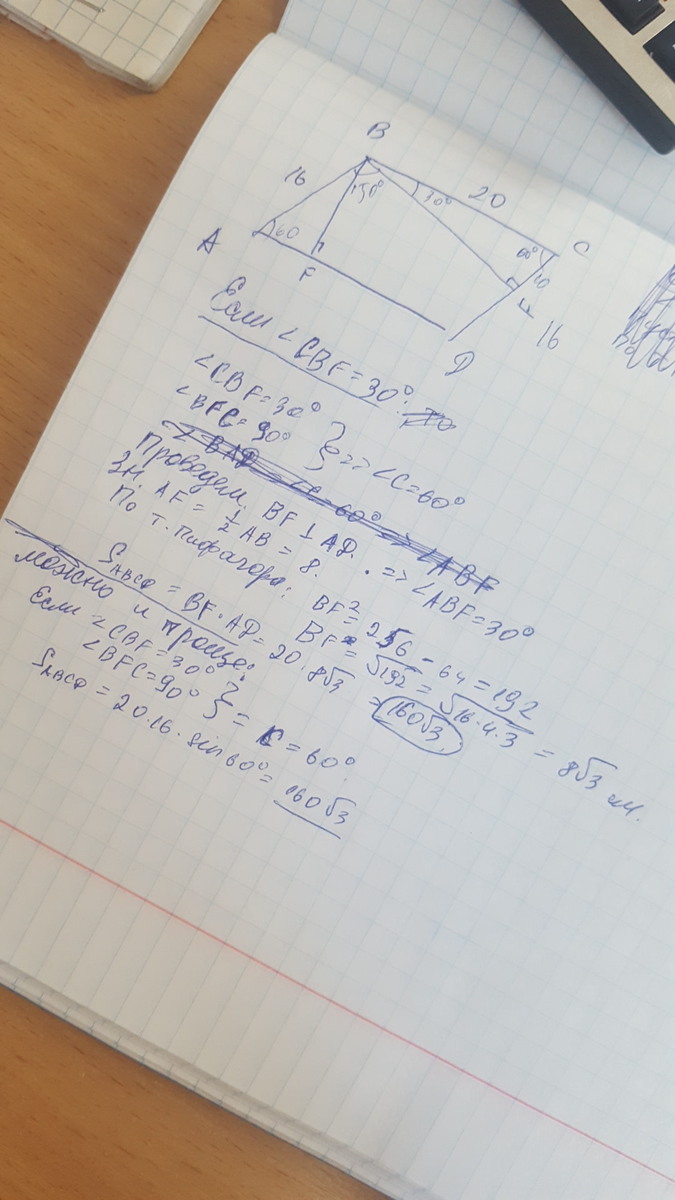 B
16
150°
30°
20
C
A
60
60°
10
F
16
D
Если ∠CBF = 30°:
∠CBF = 30°
∠BFC = 90° } => ∠C = 60°
Проведем BF ⊥ AD. => ∠ABF = 30°
Зн. AF = 1/2 AB = 8.
По т. Пифагора: BF² = 256 - 64 = 192
BF = √192 = √16·4·3 = 8√3 см.
S ABCD = BF·AD = 20·8√3 = 160√3.
можно и проще:
Если ∠CBF = 30°
∠BFC = 90° } = C = 60°.
S ABCD = 20·16·sin 60° = 160√3